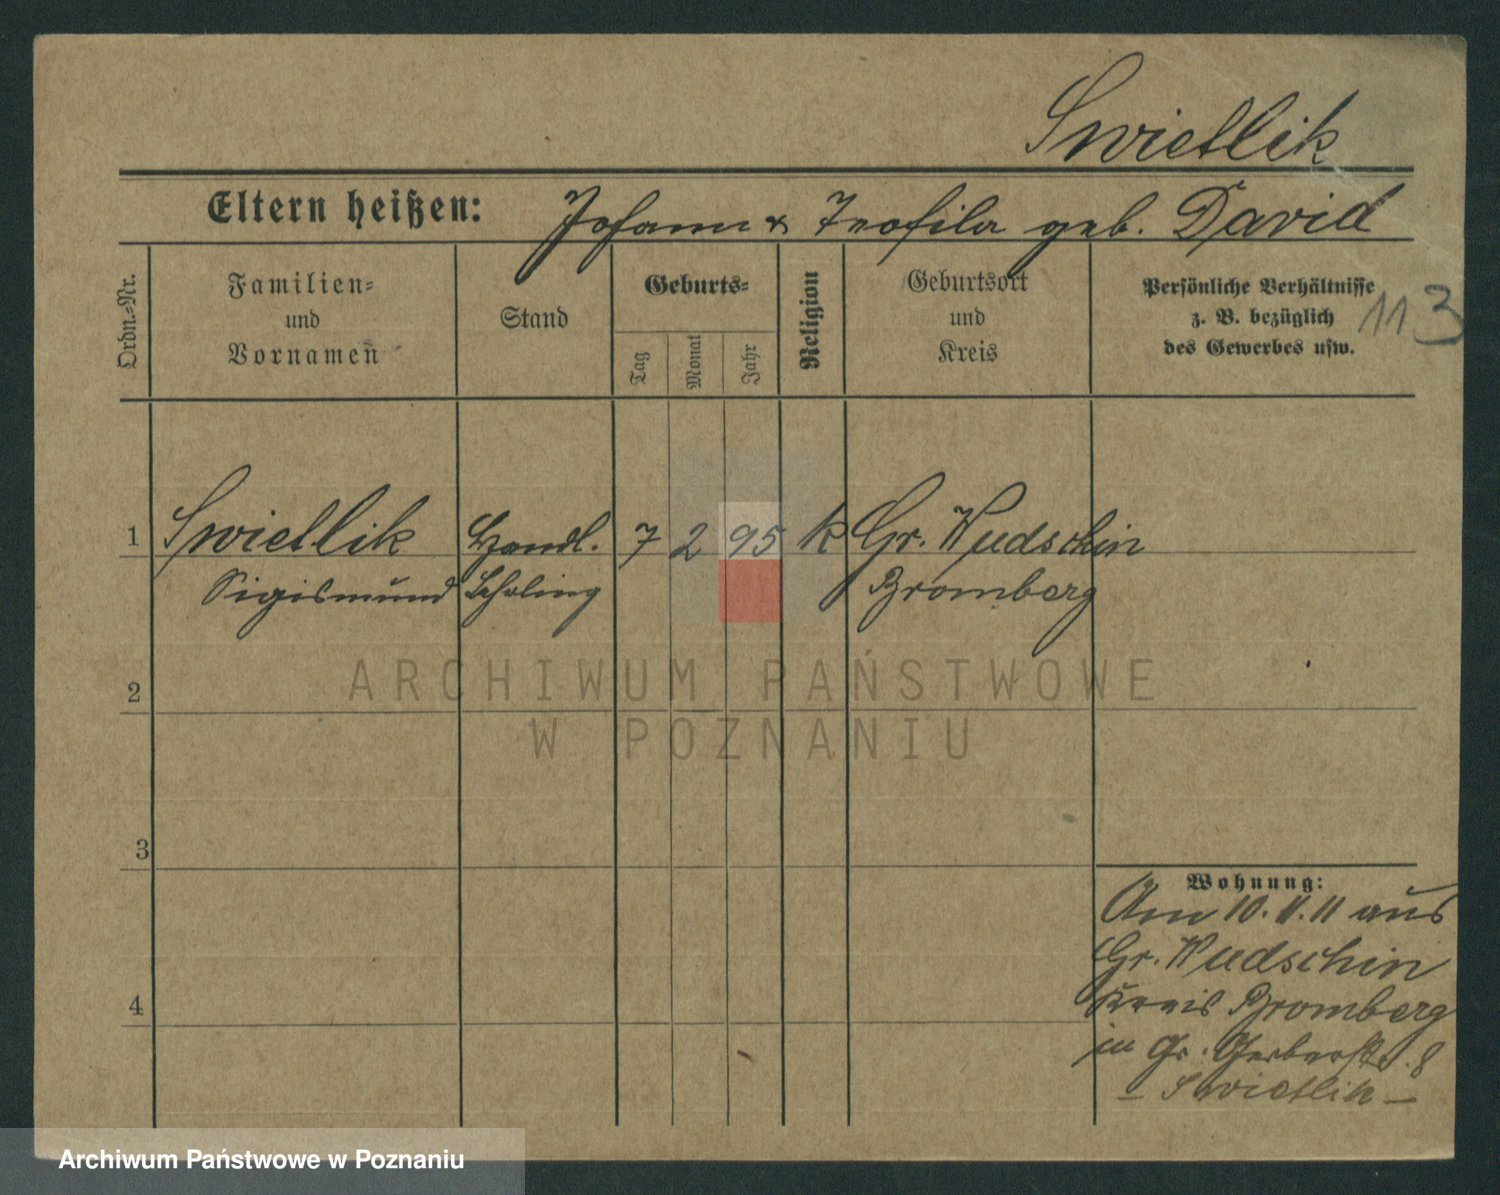 Swietlik
Eltern heißen: Johann & Teofila geb. David
Ordn.-Nr.
Familien-
und
Vornamen
Stand
Geburts-
Tag
Monat
Jahr
Religion
Geburtsort
und
Kreis
Persönliche Verhältnisse
z. B. bezüglich
des Gewerbes usw.
113
1 Swietlik Handl. 7 2 95 k Gr. Wudschin
Sigismund Lehrling Bromberg
2
3
4
Wohnung:
Am 10. V. 11 aus
Gr. Wudschin
Kreis Bromberg
in Gr. Gerberstr. 8
– Swietlik –
ARCHIWUM PAŃSTWOWE
W POZNANIU
Archiwum Państwowe w Poznaniu